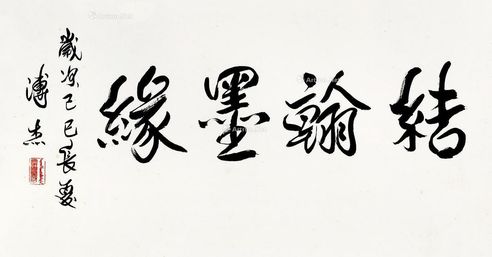 結翰墨緣
歲次己巳長夏
溥杰